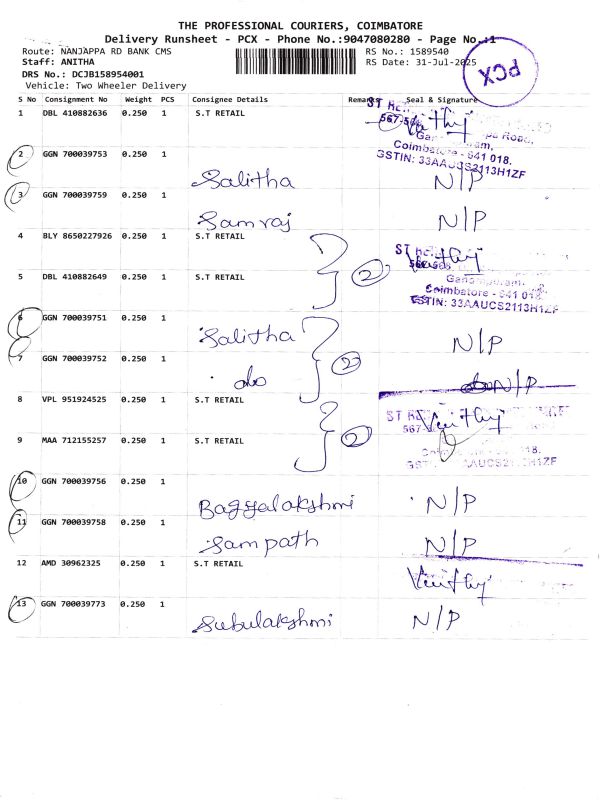 THE PROFESSIONAL COURIERS, COIMBATORE
Delivery Runsheet - PCX - Phone No.:9047080280 - Page No.:1
Route: NANJAPPA RD BANK CMS
RS No.: 1589540
Staff: ANITHA
RS Date: 31-Jul-2025
PCX
DRS No.: DCJB158954001
Vehicle: Two Wheeler Delivery
S No Consignment No Weight PCS Consignee Details Remarks Seal & Signature
1 DBL 410882636 0.250 1 S.T RETAIL
Coimbatore - 641 018.
GSTIN: 33AAUCS2113H1ZF
2 GGN 700039753 0.250 1
Salitha N/P
3 GGN 700039759 0.250 1
Samraj N/P
4 BLY 8650227926 0.250 1 S.T RETAIL
2
5 DBL 410882649 0.250 1 S.T RETAIL
Coimbatore - 641 018.
GSTIN: 33AAUCS2113H1ZF
6 GGN 700039751 0.250 1
Salitha N/P
7 GGN 700039752 0.250 1
2
do N/P
8 VPL 951924525 0.250 1 S.T RETAIL
2
9 MAA 712155257 0.250 1 S.T RETAIL
10 GGN 700039756 0.250 1
Baggyalakshmi N/P
11 GGN 700039758 0.250 1
Sampath N/P
12 AMD 30962325 0.250 1 S.T RETAIL
13 GGN 700039773 0.250 1
Subulakshmi N/P